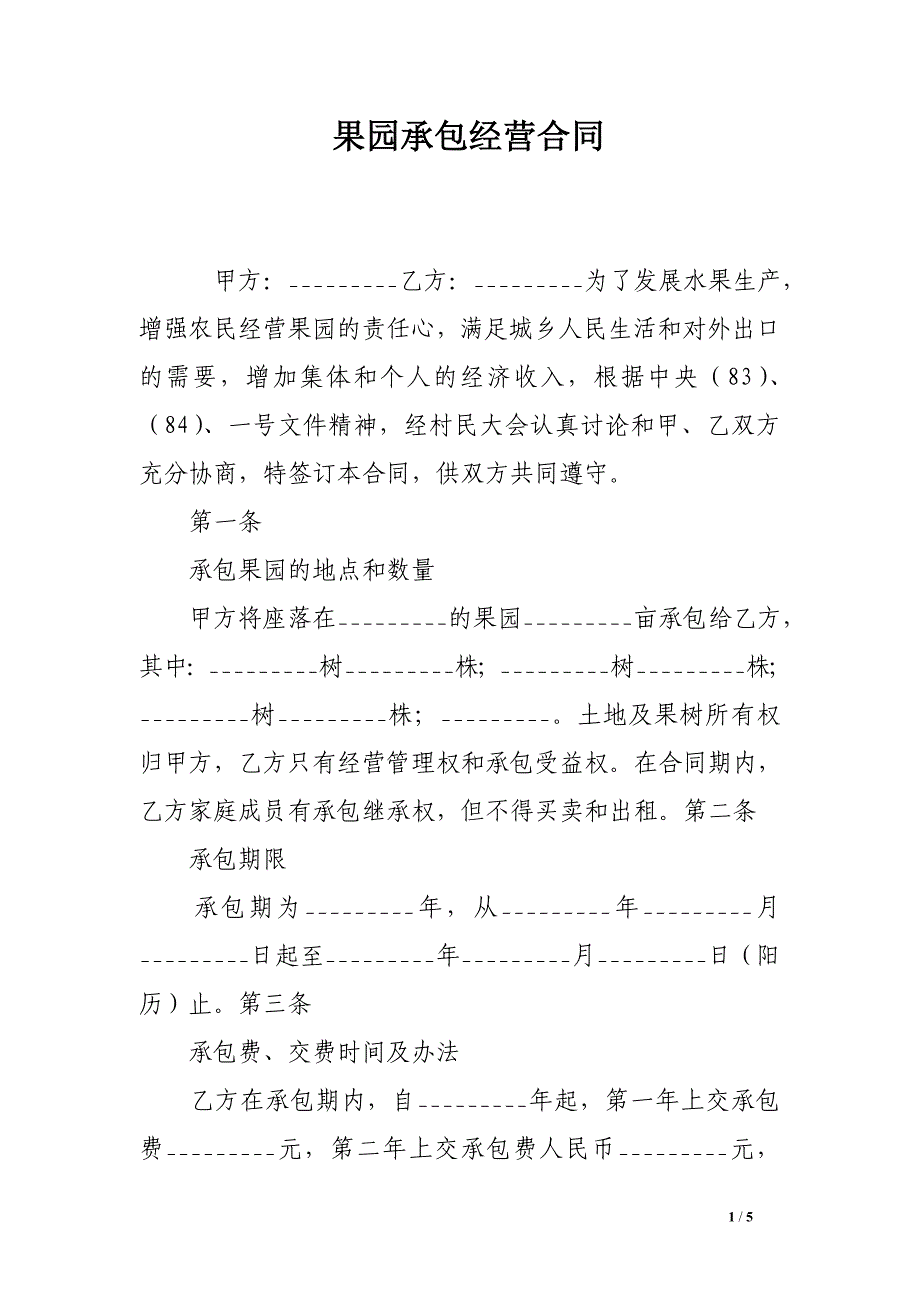 果园承包经营合同
甲方：_________乙方：_________为了发展水果生产，
增强农民经营果园的责任心，满足城乡人民生活和对外出口
的需要，增加集体和个人的经济收入，根据中央（83）、
（84）、一号文件精神，经村民大会认真讨论和甲、乙双方
充分协商，特签订本合同，供双方共同遵守。
第一条
承包果园的地点和数量
甲方将座落在_________的果园_________亩承包给乙方，
其中：_________树_________株；_________树_________株；
_________树_________株；_________。土地及果树所有权
归甲方，乙方只有经营管理权和承包受益权。在合同期内，
乙方家庭成员有承包继承权，但不得买卖和出租。第二条
承包期限
承包期为_________年，从_________年_________月
_________日起至_________年_________月_________日（阳
历）止。第三条
承包费、交费时间及办法
乙方在承包期内，自_________年起，第一年上交承包
费_________元，第二年上交承包费人民币_________元，
1 / 5